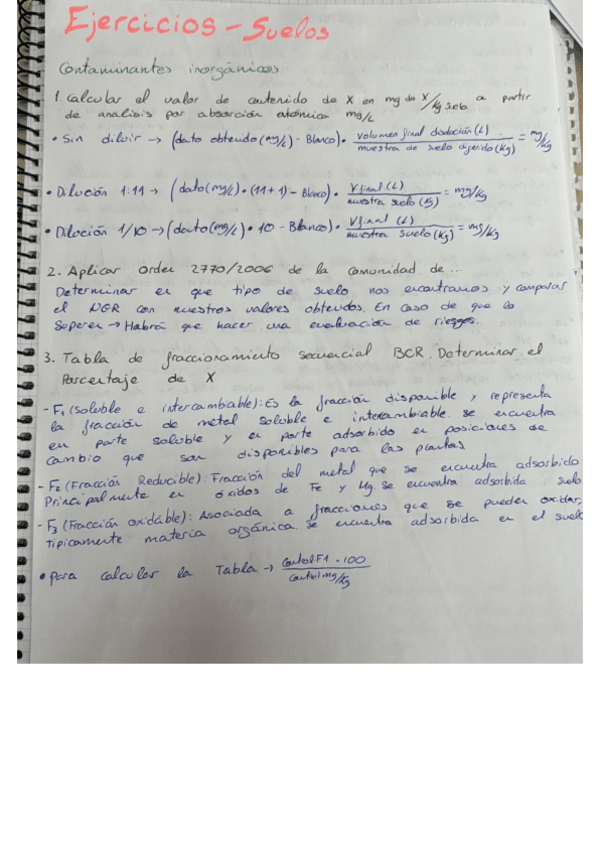 Ejercicios - Suelos
Contaminantes inorgánicos
1. Calcular el valor de contenido de X en mg de X/Kg suelo a partir
de analisis por absorción atómica mg/L
• Sin diluir → (dato obtenido (mg/L) - Blanco) · volumen final disolución (L) / muestra de suelo digerido (Kg) = mg/Kg
• Dilución 1:11 → (dato (mg/L) · (11+1) - Blanco) · V final (L) / muestra suelo (Kg) = mg/Kg
• Dilución 1/10 → (dato (mg/L) · 10 - Blanco) · V final (L) / muestra suelo (Kg) = mg/Kg
2. Aplicar orden 2770/2006 de la comunidad de ...
Determinar en que tipo de suelo nos encontramos y comparar
el NGR con nuestros valores obtenidos. En caso de que lo
Superen → Habrá que hacer una evaluación de riesgos.
3. Tabla de fraccionamiento secuencial BCR. Determinar el
Porcentaje de X
- F1 (Soluble e intercambiable): Es la fracción disponible y representa
la fracción de metal soluble e intercambiable. se encuentra
en parte soluble y en parte adsorbido en posiciones de
cambio que son disponibles para las plantas.
- F2 (Fracción Reducible): Fracción del metal que se encuentra adsorbido
Principalmente en óxidos de Fe y Mg. Se encuentra adsorbida suelo
- F3 (Fracción oxidable): Asociada a fracciones que se pueden oxidar,
tipicamente materia orgánica. Se encuentra adsorbida en el suelo
• Para calcular la Tabla → F1 · 100 / mg/Kg